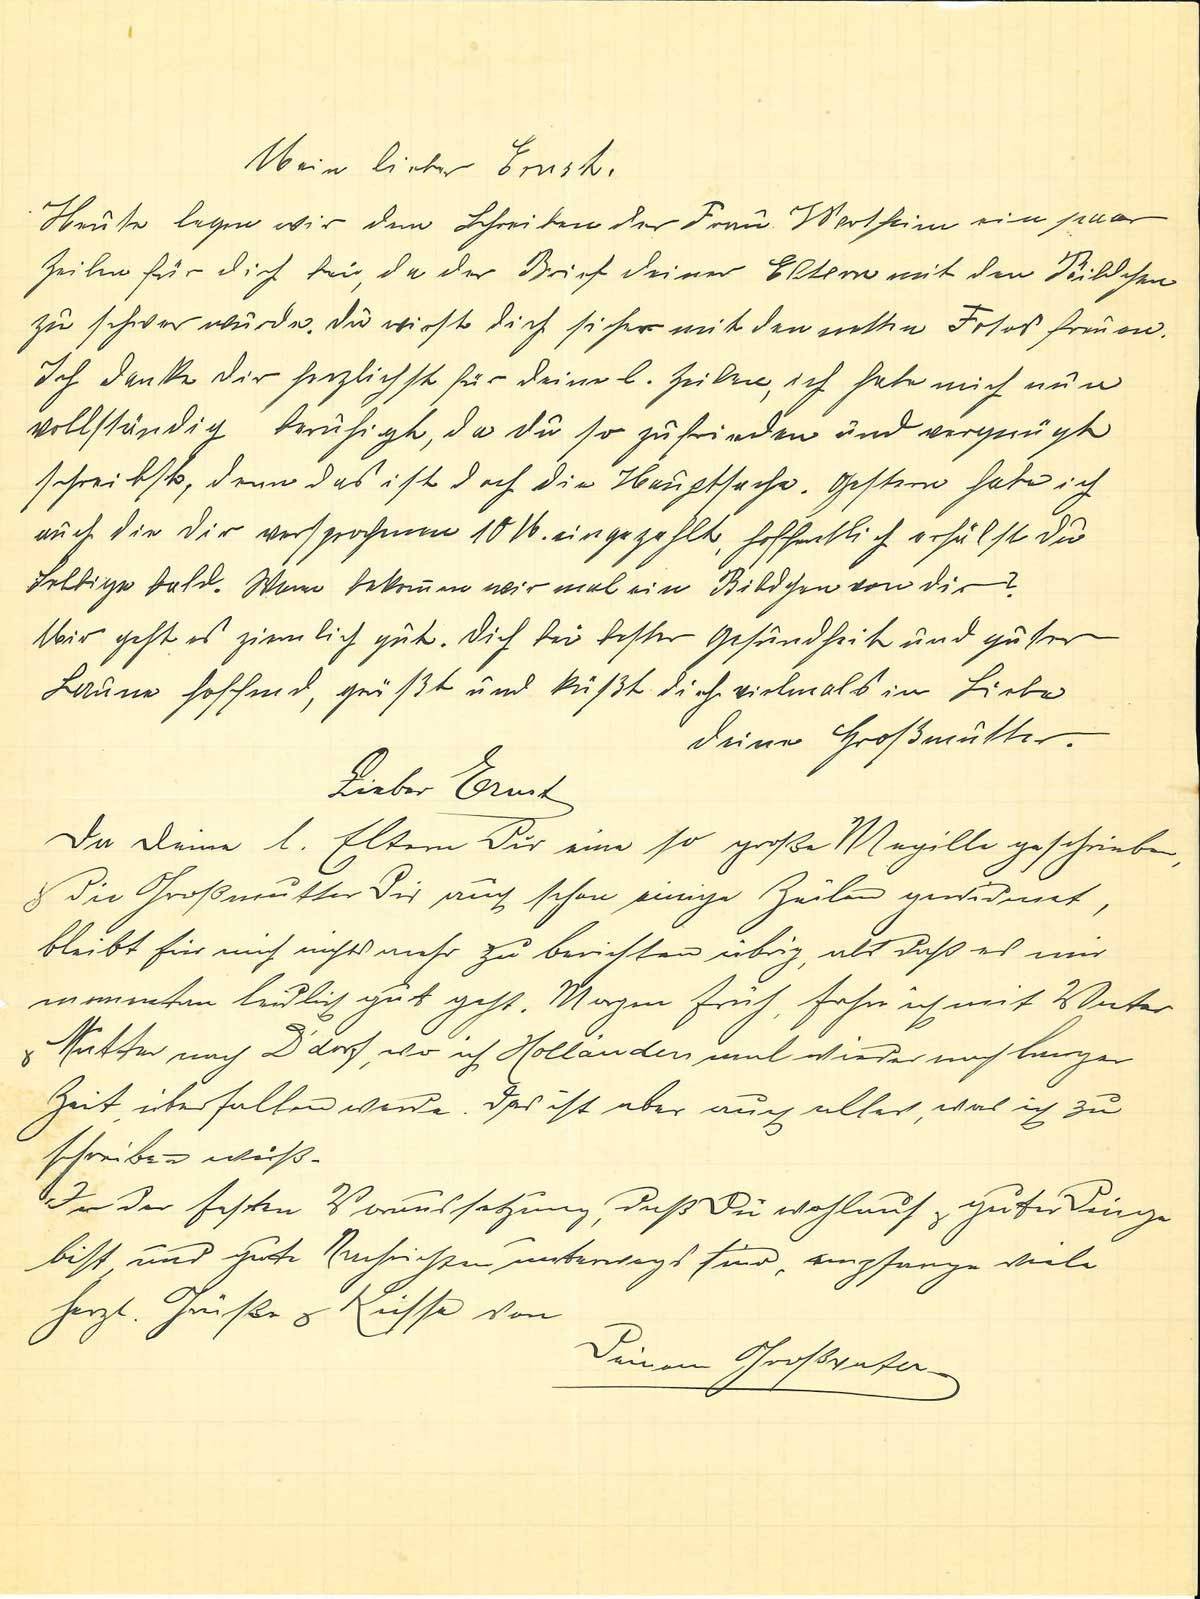 Mein lieber Ernst.
Heute legen wir dem Schreiben der Frau Wertheim ein paar
Zeilen für dich bei, da der Brief deiner Eltern mit den Bildchen
zu schwer würde. Du wirst dich sicher mit den netten Fotos freuen.
Ich danke dir herzlichst für deine l. Zeilen, ich habe mich nun
vollständig beruhigt, da du so zufrieden und vergnügt
schreibst, denn das ist doch die Hauptsache. Gestern habe ich
auch die dir versprochenen 10 M. eingezahlt, hoffentlich erhälst du
selbige bald. Wann bekommen wir mal ein Bildchen von dir?
Mir geht es ziemlich gut. Dich bei bester Gesundheit und guter
Laune hoffend, grüßt und küßt dich vielmals in Liebe
deine Großmutter.
Lieber Ernst
Da Deine l. Eltern Dir eine so große Megille geschrieben,
& die Großmutter Dir auch schon einige Zeilen gewidmet,
bleibt für mich nichts mehr zu berichten übrig, als daß es mir
momentan leidlich gut geht. Morgen früh, fahre ich mit Vater
& Mutter nach D'dorf, wo ich Holländers mal wieder nach langer
Zeit überfallen werde. Das ist aber auch alles, was ich zu
schreiben weiß.
In der festen Voraussetzung, daß Du wohlauf & guter Dinge
bist, und gute Nachrichten unterwegs sind, empfange viele
herzl. Grüße & Küsse von
Deinem Großvater